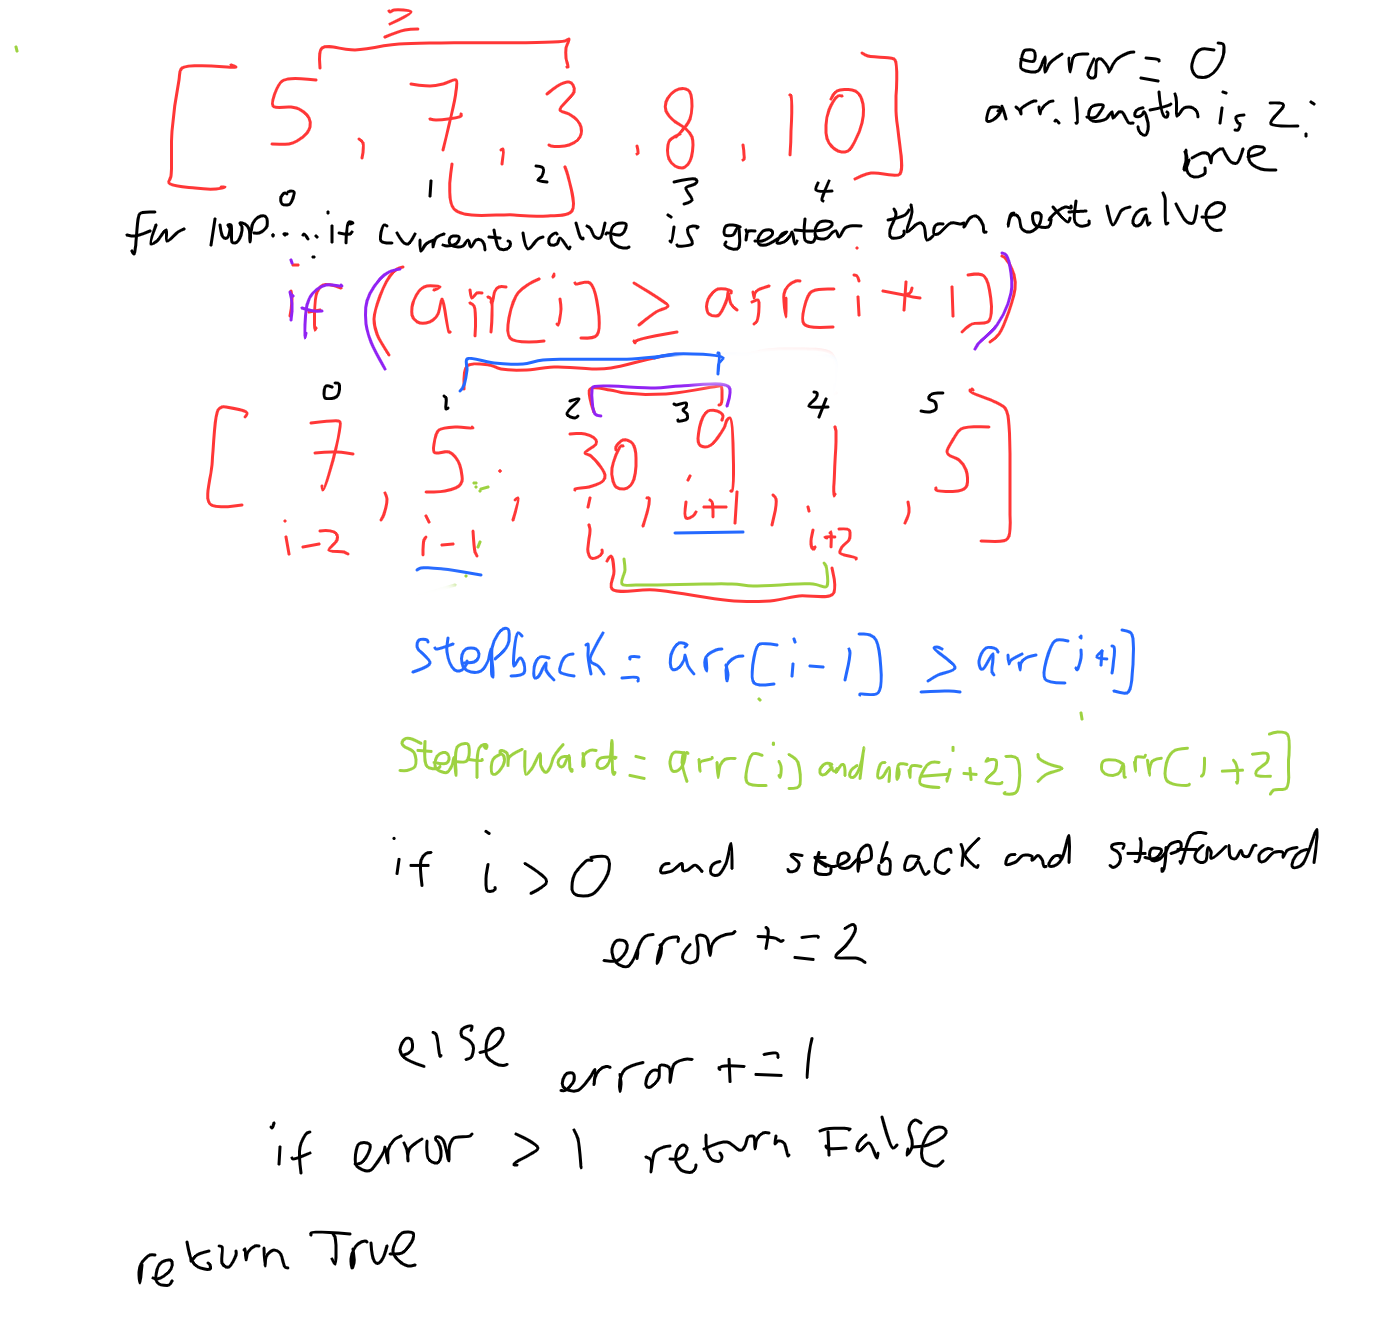 ≥
[ 5, 7, 3, 8, 10 ]
error = 0
arr.length is 2:
true
0 1 2 3 4
for loop.... if current value is greater than next value
if (arr[i] ≥ arr[i+1])
0 1 2 3 4 5
[ 7, 5, 30, 9, 1, 5 ]
i-2 i-1 i i+1 i+2
stepback = arr[i-1] ≥ arr[i+1]
Stepforward = arr[i] and arr[i+2] > arr[i+2]
if i > 0 and stepback and stepforward
error += 2
else
error += 1
if error > 1 return False
return True